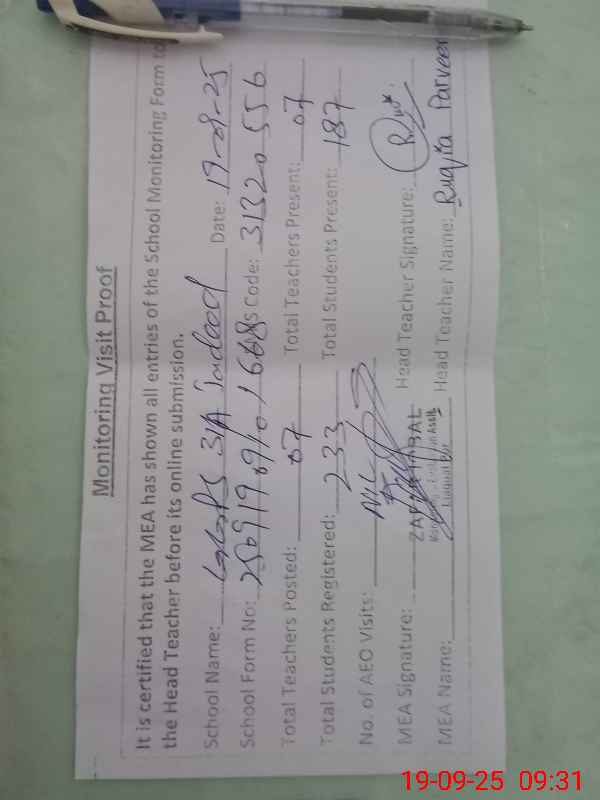 Monitoring Visit Proof
It is certified that the MEA has shown all entries of the School Monitoring Form to
the Head Teacher before its online submission.
School Name: GGPS 31A Date: 19-09-25
School Form No: S Code: 31320556
Total Teachers Posted: 07 Total Teachers Present: 07
Total Students Registered: 233 Total Students Present: 187
No. of AEO Visits: Nil
MEA Signature: Head Teacher Signature:
ZAFAR IQBAL
MEA Name: Head Teacher Name: Ruqia Parveen
19-09-25 09:31